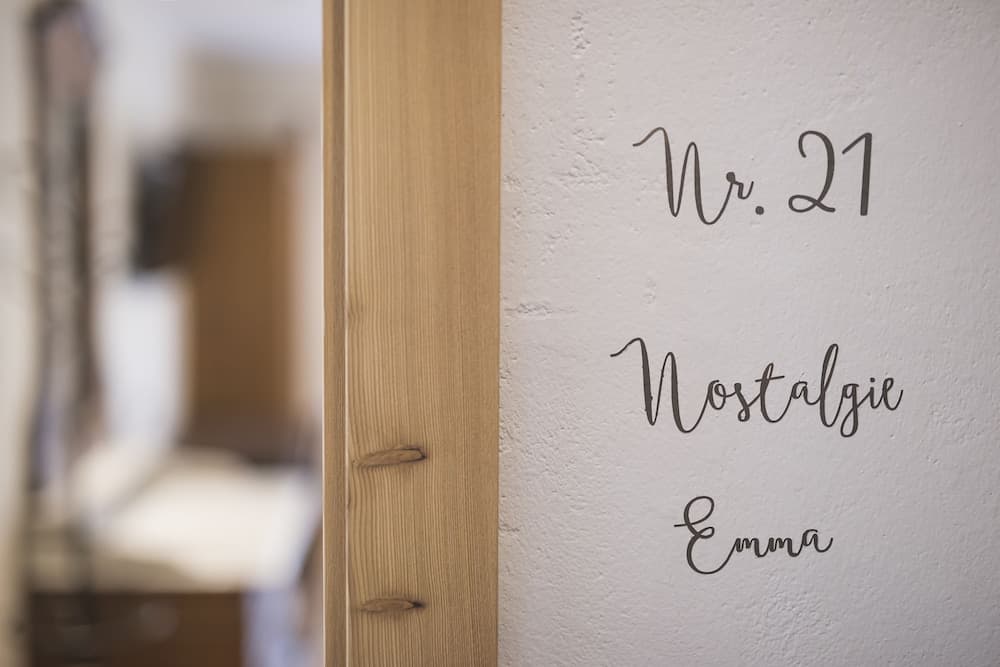 Nr. 21
Nostalgie
Emma